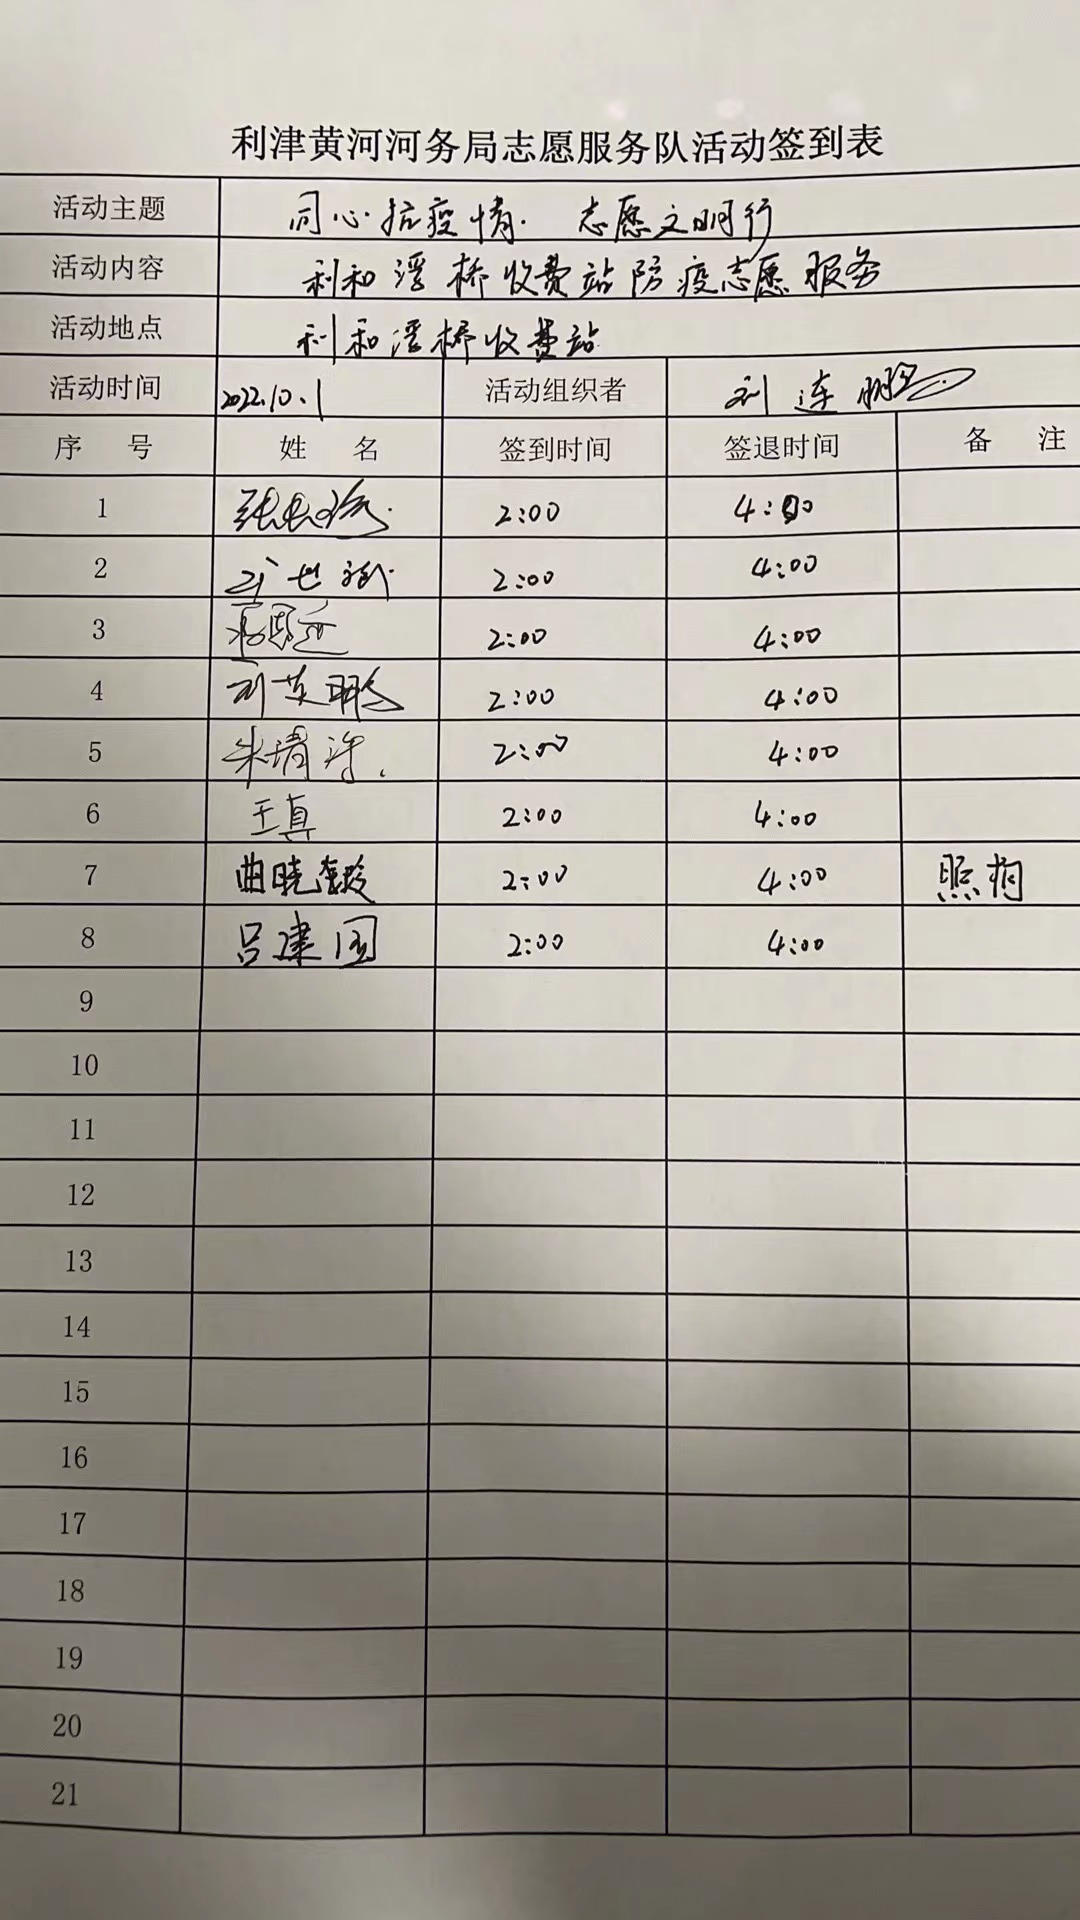 利津黄河河务局志愿服务队活动签到表
活动主题 同心抗疫情. 志愿文明行
活动内容 利和浮桥收费站防疫志愿服务
活动地点 利和浮桥收费站
活动时间 2022.10.1 活动组织者 刘连鹏
序 号 姓 名 签到时间 签退时间 备 注
1 2:00 4:00
2 2:00 4:00
3 2:00 4:00
4 刘英鹏 2:00 4:00
5 朱清 2:00 4:00
6 王真 2:00 4:00
7 曲晓 2:00 4:00 照相
8 吕建国 2:00 4:00
9
10
11
12
13
14
15
16
17
18
19
20
21